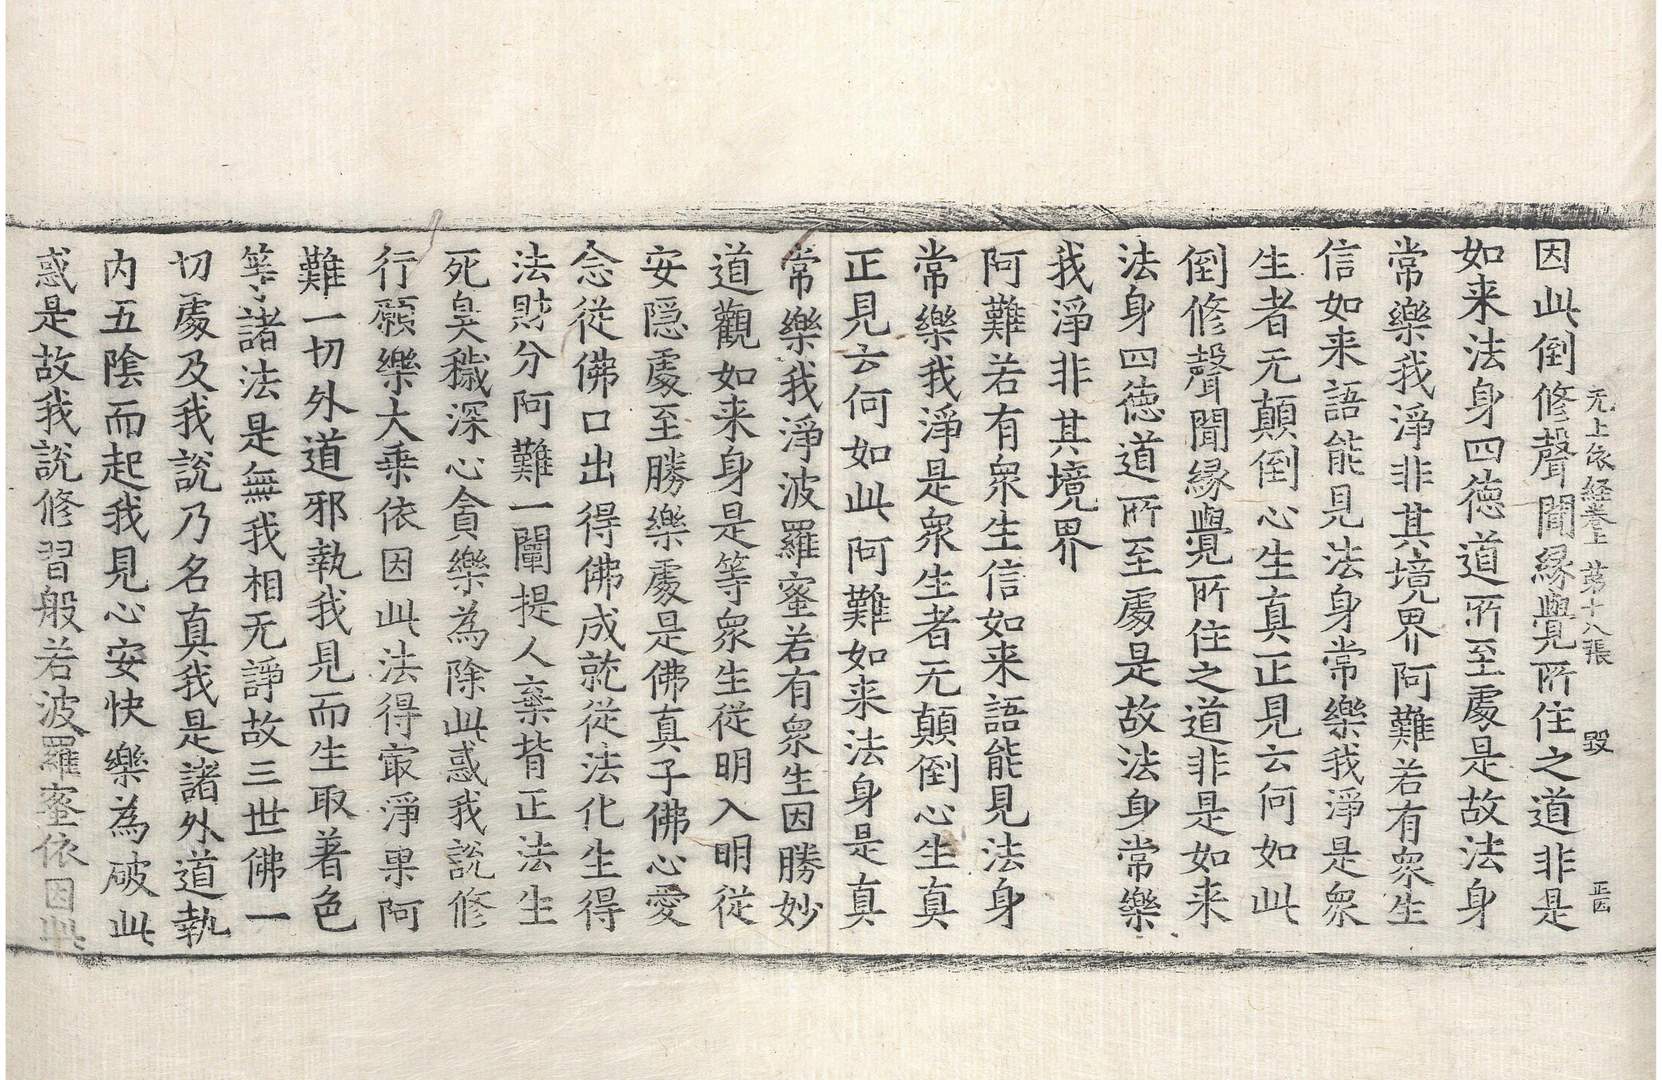 无上依経卷上 苐十八張 毁 正因
因此倒修聲聞縁覺所住之道非是
如来法身四徳道所至處是故法身
常樂我淨非其境界阿難若有衆生
信如来語能見法身常樂我淨是衆
生者无顛倒心生真正見云何如此
倒修聲聞縁覺所住之道非是如来
法身四徳道所至處是故法身常樂
我淨非其境界
阿難若有衆生信如来語能見法身
常樂我淨是衆生者无顛倒心生真
正見云何如此阿難如来法身是真
常樂我淨波羅蜜若有衆生因勝妙
道觀如来身是等衆生從明入明從
安隱處至勝樂處是佛真子佛心愛
念從佛口出得佛成就從法化生得
法財分阿難一闡提人棄背正法生
死臭穢深心貪樂為除此惑我說修
行願樂大乗依因此法得㝡淨果阿
難一切外道邪執我見而生取著色
等諸法是無我相无諍故三世佛一
切處及我說乃名真我是諸外道執
内五陰而起我見心安快樂為破此
惑是故我說修習般若波羅蜜依因此